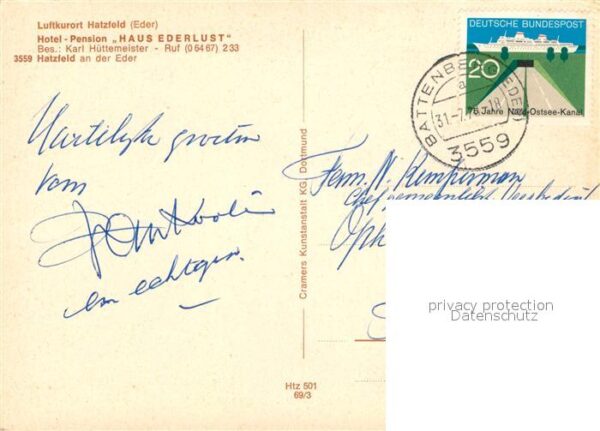 Luftkurort Hatzfeld (Eder)
Hotel - Pension „HAUS EDERLUST"
Bes.: Karl Hüttemeister - Ruf (0 64 67) 2 33
3559 Hatzfeld an der Eder
Hartelijke groeten
van
en echtgen.
Cramers Kunstanstalt KG, Dortmund
Htz 501
69/3
DEUTSCHE BUNDESPOST
20
75 Jahre Nord-Ostsee-Kanal
BATTENBERG (EDER)
a
31.-7.
-18
3559
Fam. N. Kemperman
Chef gemeentelijk
privacy protection
Datenschutz